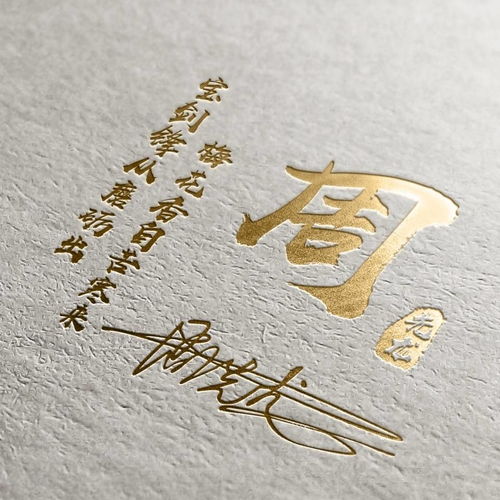 宝剑锋从磨砺出
梅花香自苦寒来
周